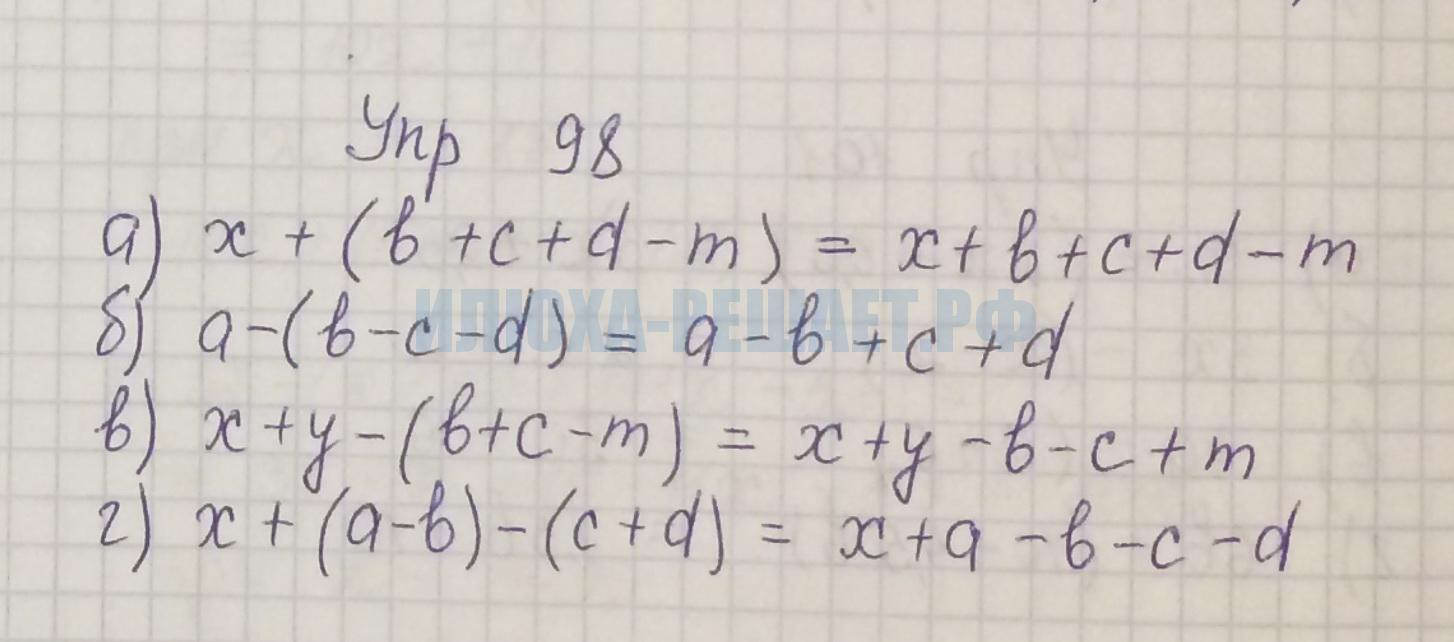 Упр 98
а) x + (b + c + d - m) = x + b + c + d - m
б) a - (b - c - d) = a - b + c + d
ИЛЮХА-РЕШАЕТ.РФ
в) x + y - (b + c - m) = x + y - b - c + m
г) x + (a - b) - (c + d) = x + a - b - c - d